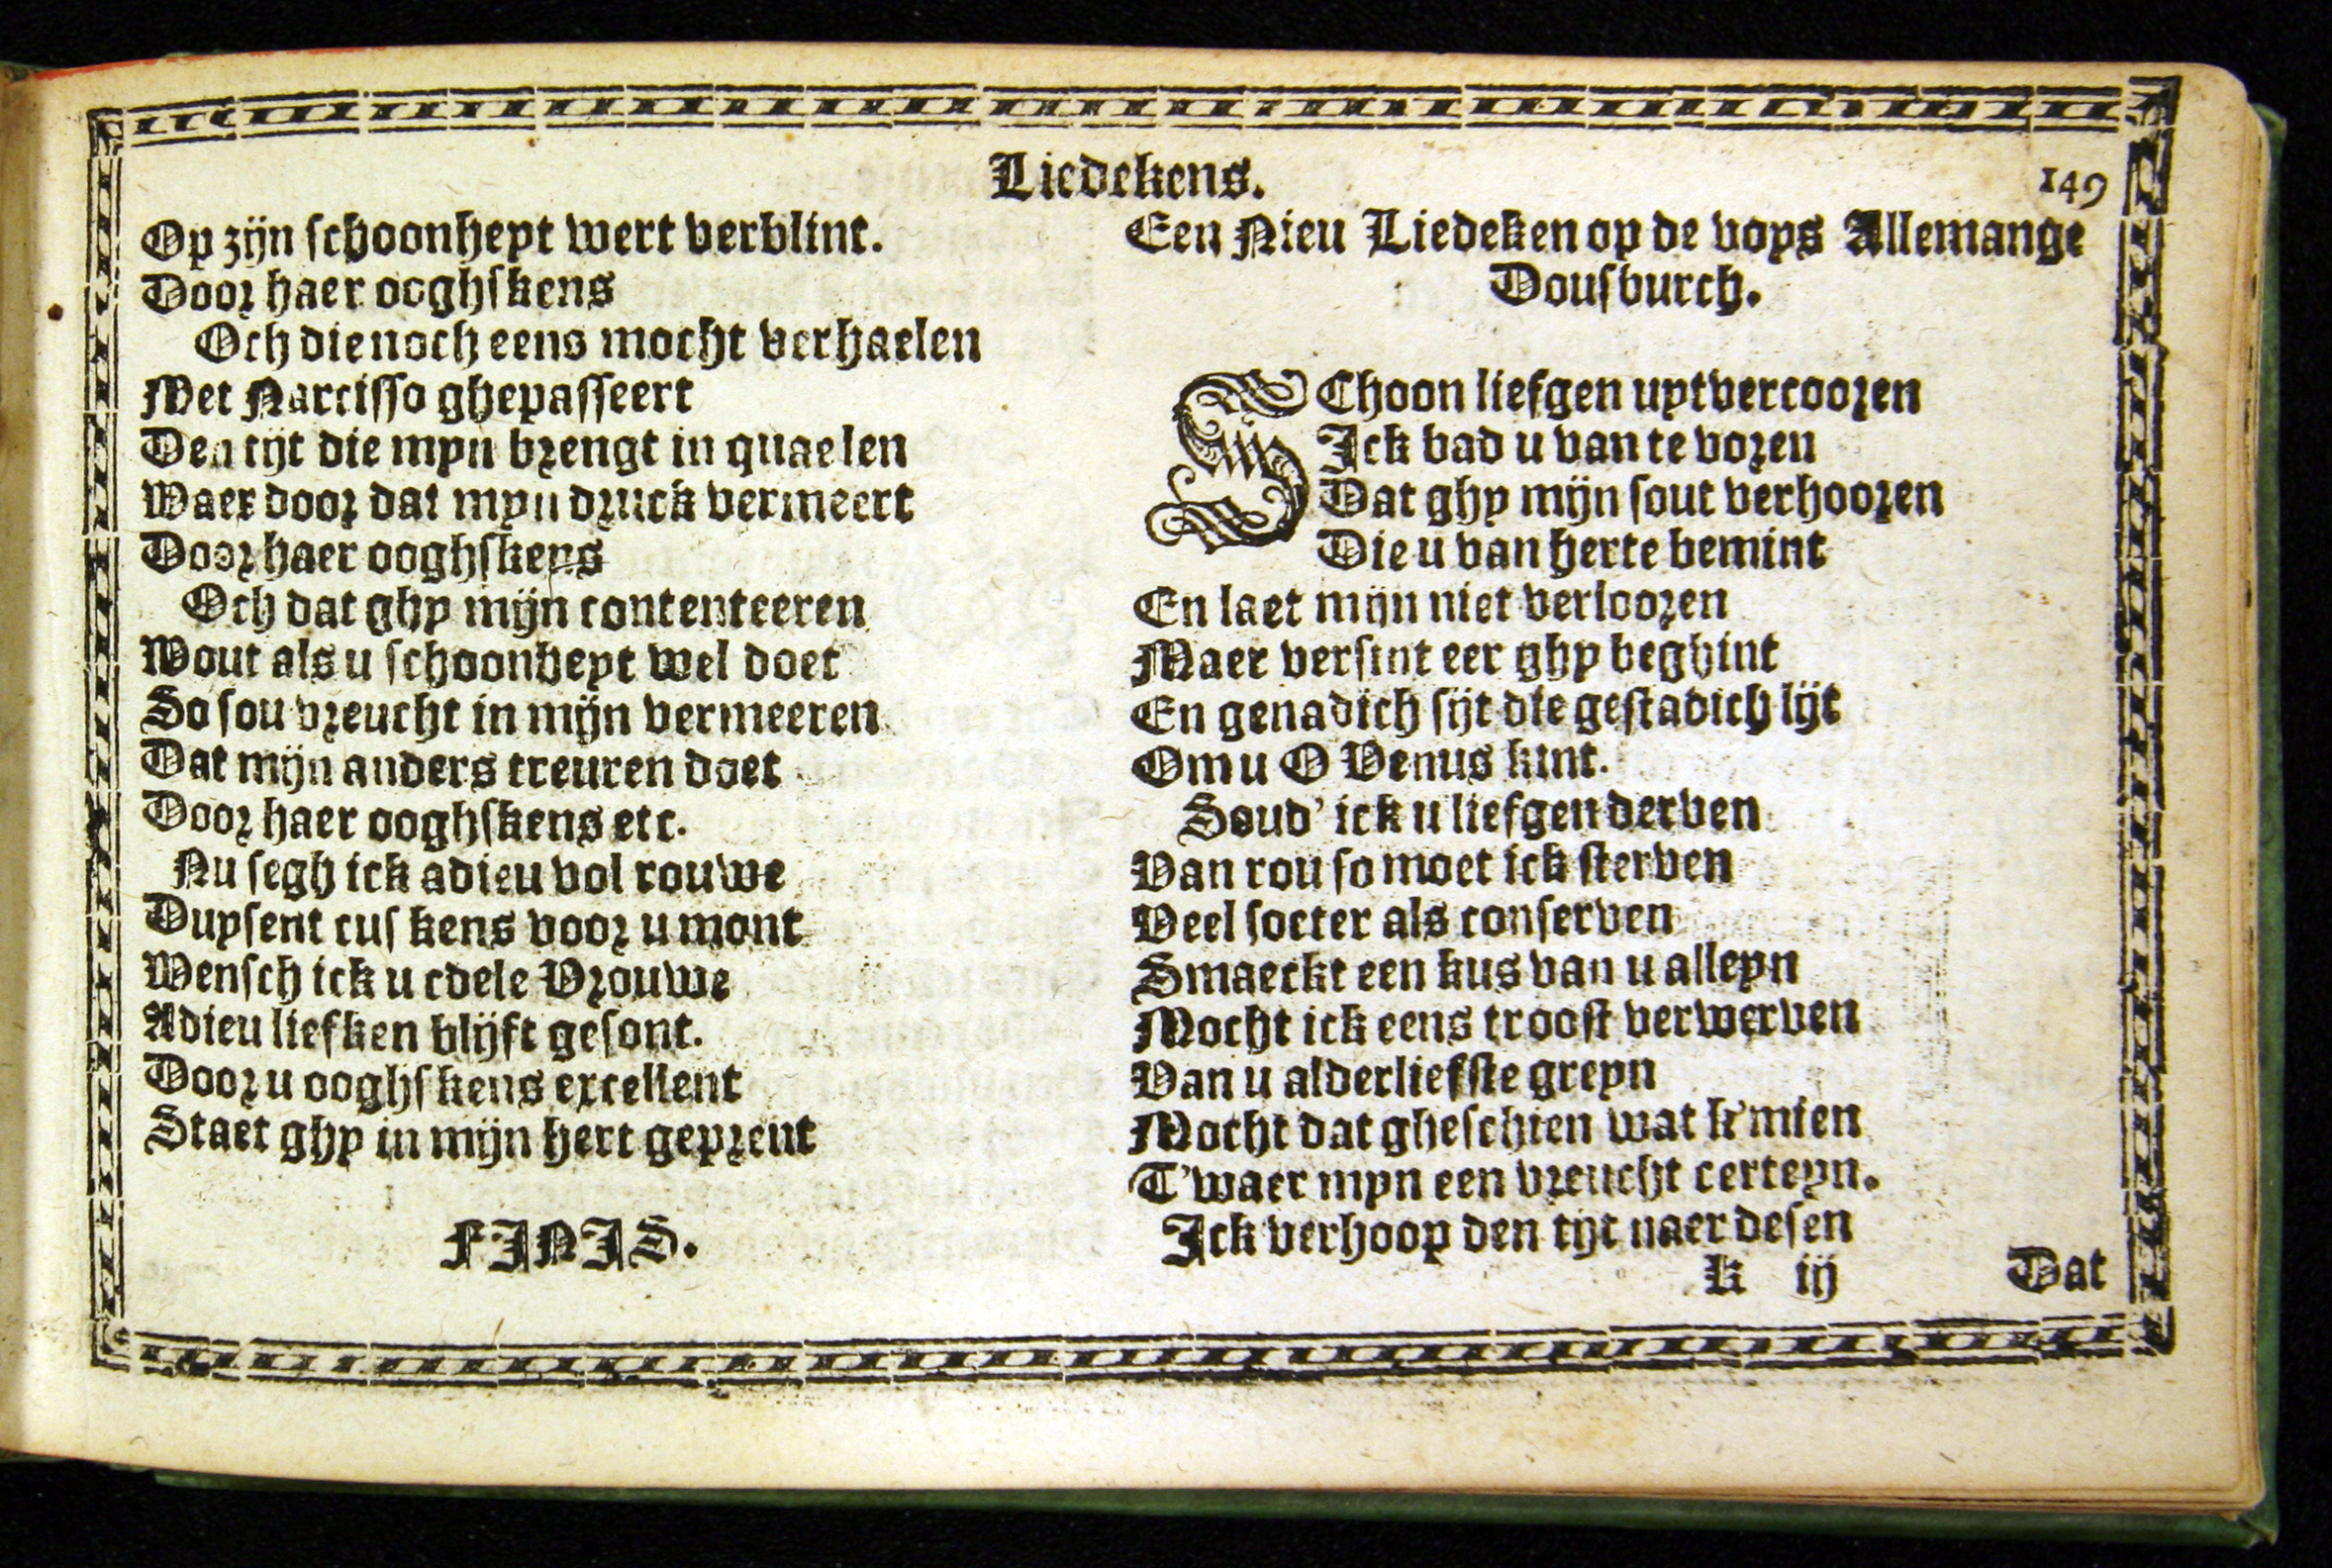 Liedekens.
149
Op zijn schoonheyt wert verblint.
Door haer ooghskens
Och die noch eens mocht verhaelen
Met Narcisso ghepasseert
Den tijt die myn brengt in quaelen
Waer door dat myn druck vermeert
Door haer ooghskens
Och dat ghy mijn contenteeren
Wout als u schoonheyt wel doet
So sou vreucht in mijn vermeeren
Dat mijn anders treuren doet
Door haer ooghskens etc.
Nu segh ick adieu vol rouwe
Duysent cuskens voor u mont
Wensch ick u edele Vrouwe
Adieu liefken blijft gesont.
Door u ooghskens excellent
Staet ghy in mijn hert geprent
FINIS.
Een Nieu Liedeken op de voys Allemange
Dousburch.
SChoon liefgen uytvercooren
Ick bad u van te voren
Dat ghy mijn sout verhooren
Die u van herte bemint
En laet mijn niet verlooren
Maer versint eer ghy beghint
En genadich sijt die gestadich lijt
Om u O Venus kint.
Soud' ick u liefgen derven
Van rou so moet ick sterven
Veel soeter als conserven
Smaeckt een kus van u alleyn
Mocht ick eens troost verwerven
Van u alderliefste greyn
Mocht dat gheschien wat k'mien
T'waer myn een vreucht certeyn.
Ick verhoop den tijt naer desen
k ij
Dat